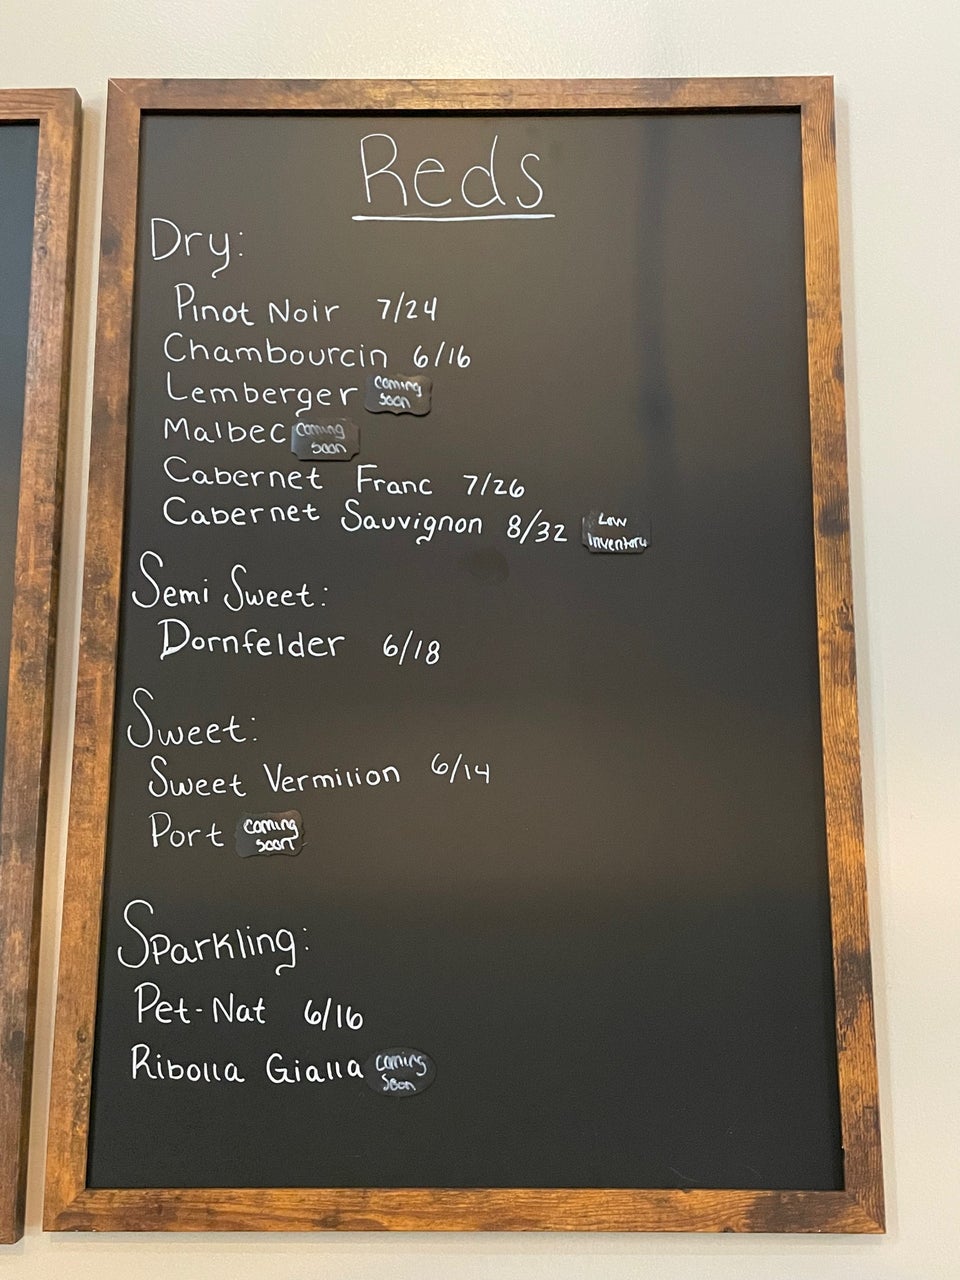 Reds
Dry:
Pinot Noir 7/24
Chambourcin 6/16
Lemberger coming soon
Malbec coming soon
Cabernet Franc 7/26
Cabernet Sauvignon 8/32 Low Inventory
Semi Sweet:
Dornfelder 6/18
Sweet:
Sweet Vermilion 6/14
Port coming soon
Sparkling:
Pet-Nat 6/16
Ribolla Gialla coming soon